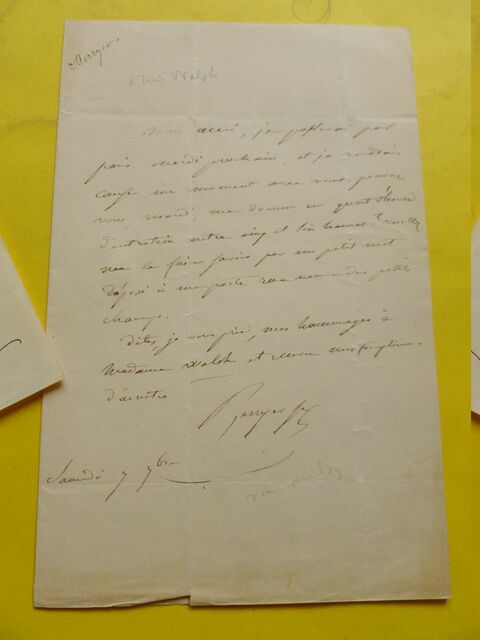 Berryer
Walsh
Mon ami, je passerai par
paris mardi prochain, et je voudrais
causer un moment avec vous, pouvez
vous, mardi, me donner un quart d'heure
d'entretien entre cinq et six heures? veuillez
me le faire savoir par un petit mot
déposé à ma porte rue neuve des petits
champs.
Dites, je vous prie, mes hommages à
Madame Walsh et recevez mes complimens
d'amitié
Berryer
Samedi 7 7bre